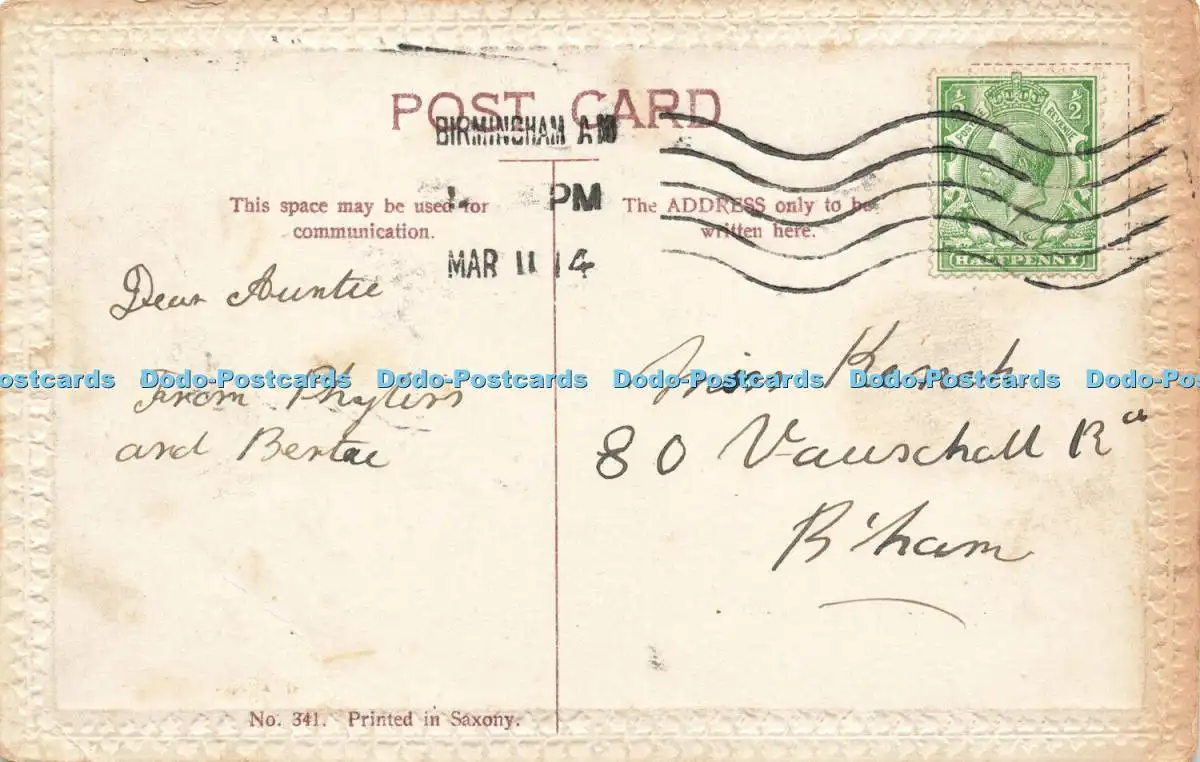 POST CARD
BIRMINGHAM
1 PM
MAR 11 14
This space may be used for
communication.
The ADDRESS only to be
written here.
½ ½
POSTAGE REVENUE
HALFPENNY
Dear Auntie
From Phyliss
and Bertae
Miss
80 Vauschall Rd
B'ham
No. 341. Printed in Saxony.
Dodo-Postcards Dodo-Postcards Dodo-Postcards Dodo-Postcards